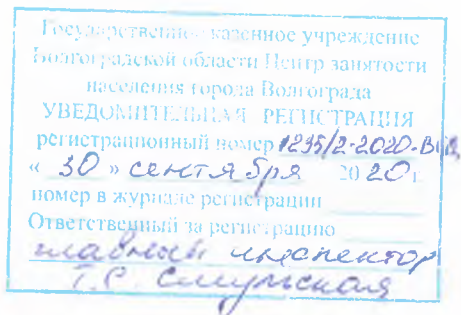 Государственное казенное учреждение
Волгоградской области Центр занятости
населения города Волгограда
УВЕДОМИТЕЛЬНАЯ РЕГИСТРАЦИЯ
регистрационный номер 1235/2-2020-
« 30 » сентября 2020 г.
номер в журнале регистрации
Ответственный за регистрацию
главный инспектор
Т.С.